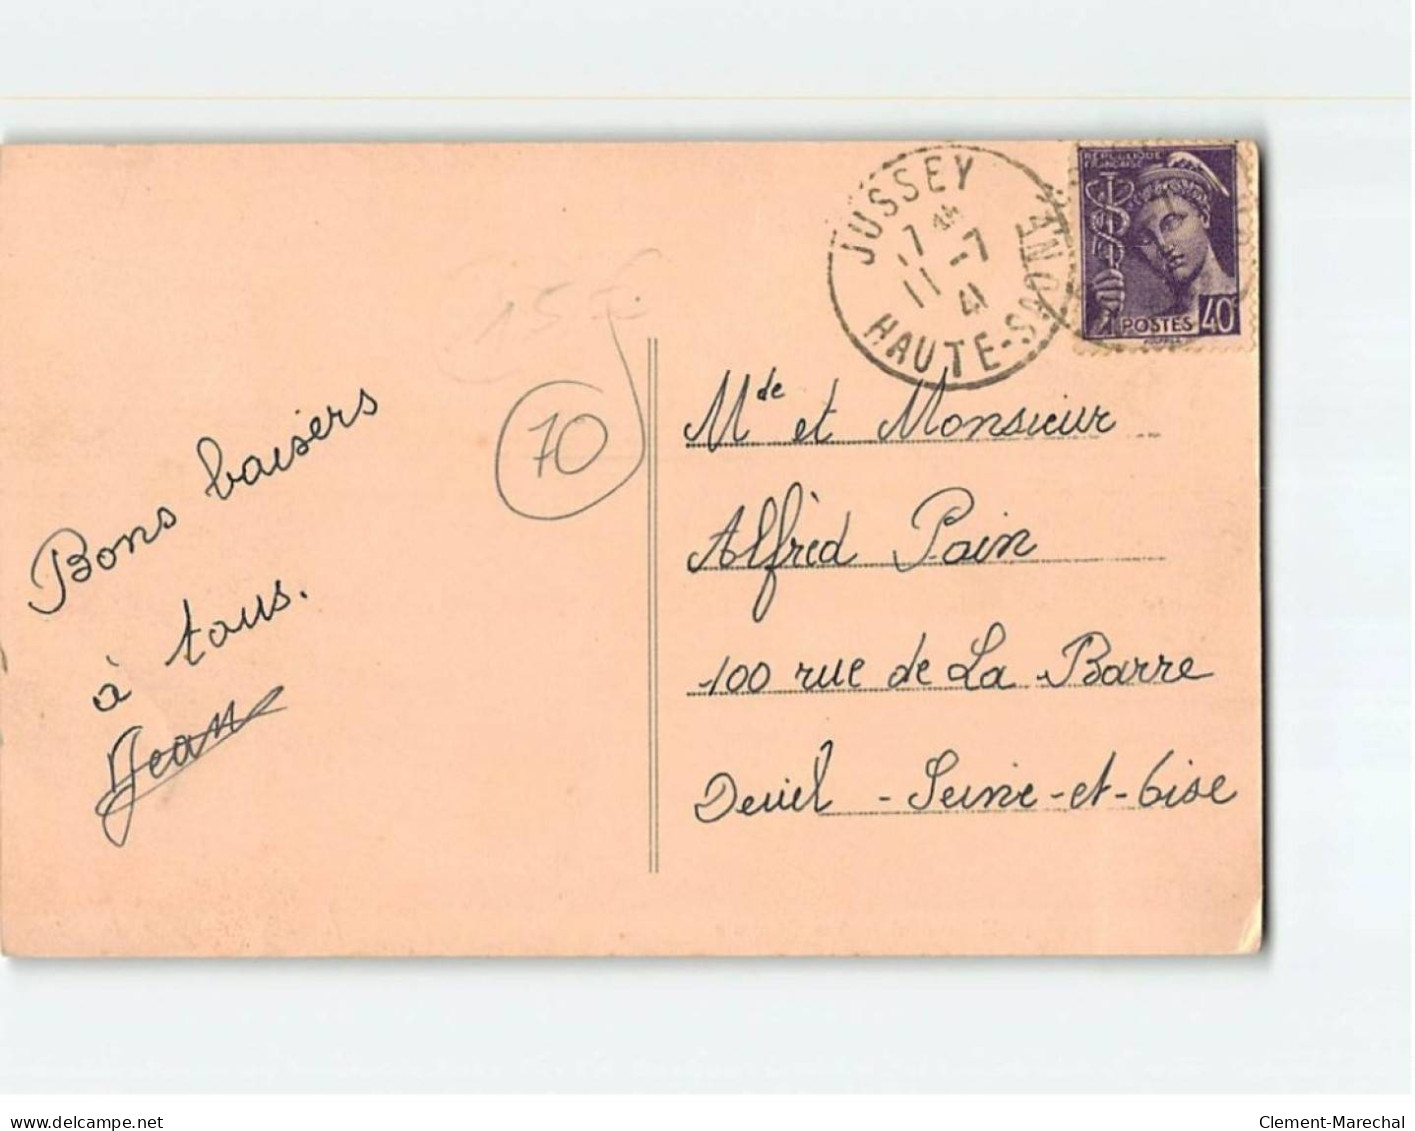 JUSSEY
7 H
11 -7
41
HAUTE-SAONE
RÉPUBLIQUE
FRANÇAISE
POSTES 40c
15 
70
Bons baisers
à tous.
Jean
Mde et Monsieur
Alfred Pain
100 rue de La Barre
Deuil - Seine-et-Oise
delcampe.net
Clement-Marechal